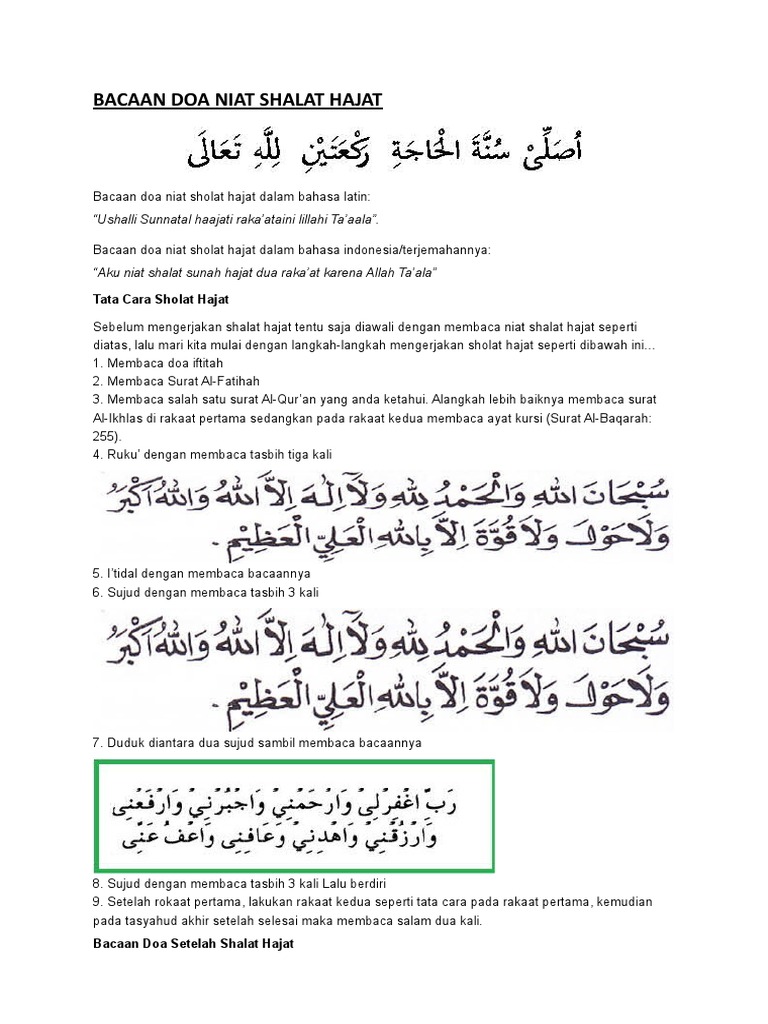 BACAAN DOA NIAT SHALAT HAJAT
اُصَلِّيْ سُنَّةَ الْحَاجَةِ رَكْعَتَيْنِ لِلَّهِ تَعَالَى
Bacaan doa niat sholat hajat dalam bahasa latin:
“Ushalli Sunnatal haajati raka’ataini lillahi Ta’aala”.
Bacaan doa niat sholat hajat dalam bahasa indonesia/terjemahannya:
“Aku niat shalat sunah hajat dua raka’at karena Allah Ta’ala”
Tata Cara Sholat Hajat
Sebelum mengerjakan shalat hajat tentu saja diawali dengan membaca niat shalat hajat seperti
diatas, lalu mari kita mulai dengan langkah-langkah mengerjakan sholat hajat seperti dibawah ini…
1. Membaca doa iftitah
2. Membaca Surat Al-Fatihah
3. Membaca salah satu surat Al-Qur’an yang anda ketahui. Alangkah lebih baiknya membaca surat
Al-Ikhlas di rakaat pertama sedangkan pada rakaat kedua membaca ayat kursi (Surat Al-Baqarah:
255).
4. Ruku’ dengan membaca tasbih tiga kali
سُبْحَانَ اللهِ وَالْحَمْدُ لِلهِ وَلَآ اِلٰهَ اِلاَّ اللهُ وَاللهُ اَكْبَرُ
وَلَاحَوْلَ وَلَا قُوَّةَ اِلاَّ بِاللهِ الْعَلِيِّ الْعَظِيْمِ .
5. I’tidal dengan membaca bacaannya
6. Sujud dengan membaca tasbih 3 kali
سُبْحَانَ اللهِ وَالْحَمْدُ لِلهِ وَلَآ اِلٰهَ اِلاَّ اللهُ وَاللهُ اَكْبَرُ
وَلَاحَوْلَ وَلَا قُوَّةَ اِلاَّ بِاللهِ الْعَلِيِّ الْعَظِيْمِ .
7. Duduk diantara dua sujud sambil membaca bacaannya
رَبِّ اغْفِرْلِيْ وَارْحَمْنِيْ وَاجْبُرْنِيْ وَارْفَعْنِى
وَارْزُقْنِيْ وَاهْدِنِيْ وَعَافِنِى وَاعْفُ عَنِّى
8. Sujud dengan membaca tasbih 3 kali Lalu berdiri
9. Setelah rokaat pertama, lakukan rakaat kedua seperti tata cara pada rakaat pertama, kemudian
pada tasyahud akhir setelah selesai maka membaca salam dua kali.
Bacaan Doa Setelah Shalat Hajat